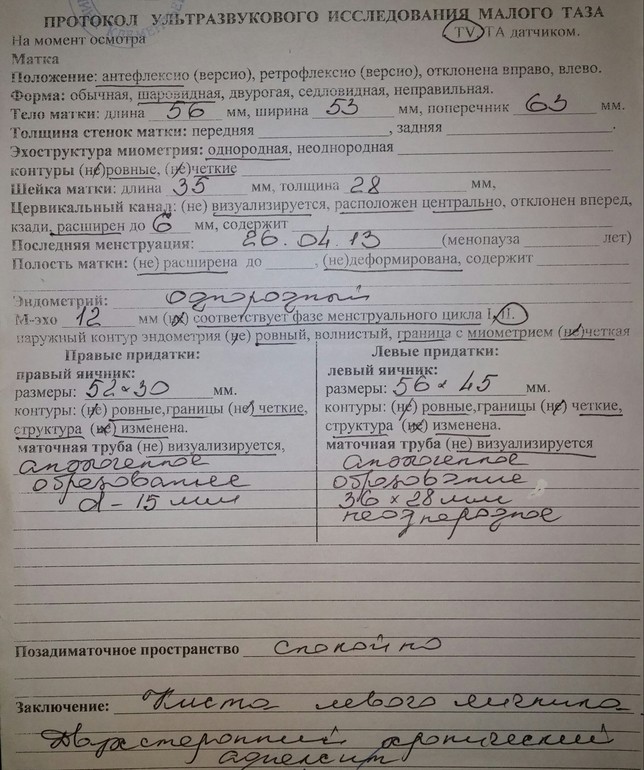 ПРОТОКОЛ УЛЬТРАЗВУКОВОГО ИССЛЕДОВАНИЯ МАЛОГО ТАЗА
На момент осмотра TV, TA датчиком.
Матка
Положение: антефлексио (версио), ретрофлексио (версио), отклонена вправо, влево.
Форма: обычная, шаровидная, двурогая, седловидная, неправильная.
Тело матки: длина 56 мм, ширина 53 мм, поперечник 63 мм.
Толщина стенок матки: передняя ______, задняя ______.
Эхоструктура миометрия: однородная, неоднородная
контуры (не)ровные, (не)четкие
Шейка матки: длина 35 мм, толщина 28 мм,
Цервикальный канал: (не) визуализируется, расположен центрально, отклонен вперед,
кзади, расширен до 6 мм, содержит
Последняя менструация: 26.04.13 (менопауза ______ лет)
Полость матки: (не) расширена до ____, (не)деформирована, содержит
Эндометрий: однородный
М-эхо 12 мм (не) соответствует фазе менструального цикла I, II.
наружный контур эндометрия (не) ровный, волнистый, граница с миометрием (не)четкая
Правые придатки:
правый яичник:
размеры: 52 × 30 мм.
контуры: (не) ровные, границы (не) четкие,
структура (не) изменена.
маточная труба (не) визуализируется,
образование
d - 15 мм
Левые придатки:
левый яичник:
размеры: 56 × 45 мм.
контуры: (не) ровные, границы (не) четкие,
структура (не) изменена.
маточная труба (не) визуализируется
образование
36 × 28 мм
неоднородное
Позадиматочное пространство спокойно
Заключение: Киста левого яичника.
Двухсторонний хронический
аднексит